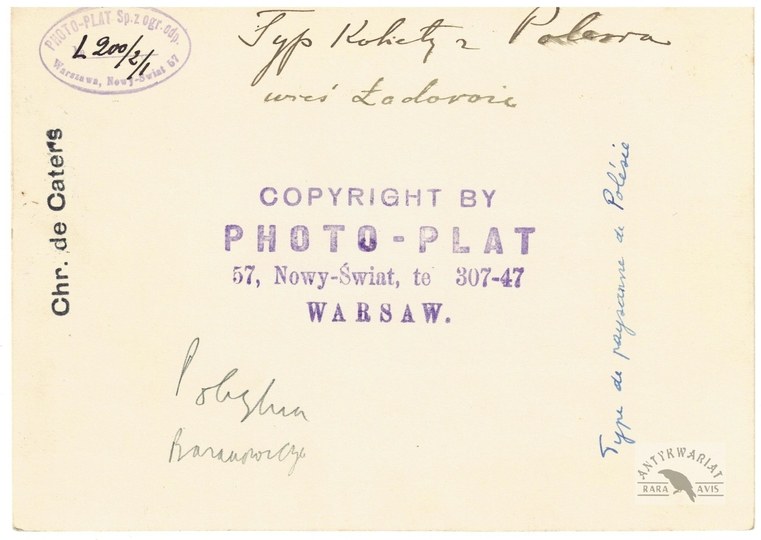 PHOTO-PLAT Sp. z ogr. odp.
L 200/2/1
Warszawa, Nowy-Świat 57
Typ Kobiety z
wieś
Chr. de Caters
COPYRIGHT BY
PHOTO-PLAT
57, Nowy-Świat, te 307-47
WARSAW.
Baranowicze
Type de paysanne de Polésie
ANTYKWARIAT
RARA AVIS